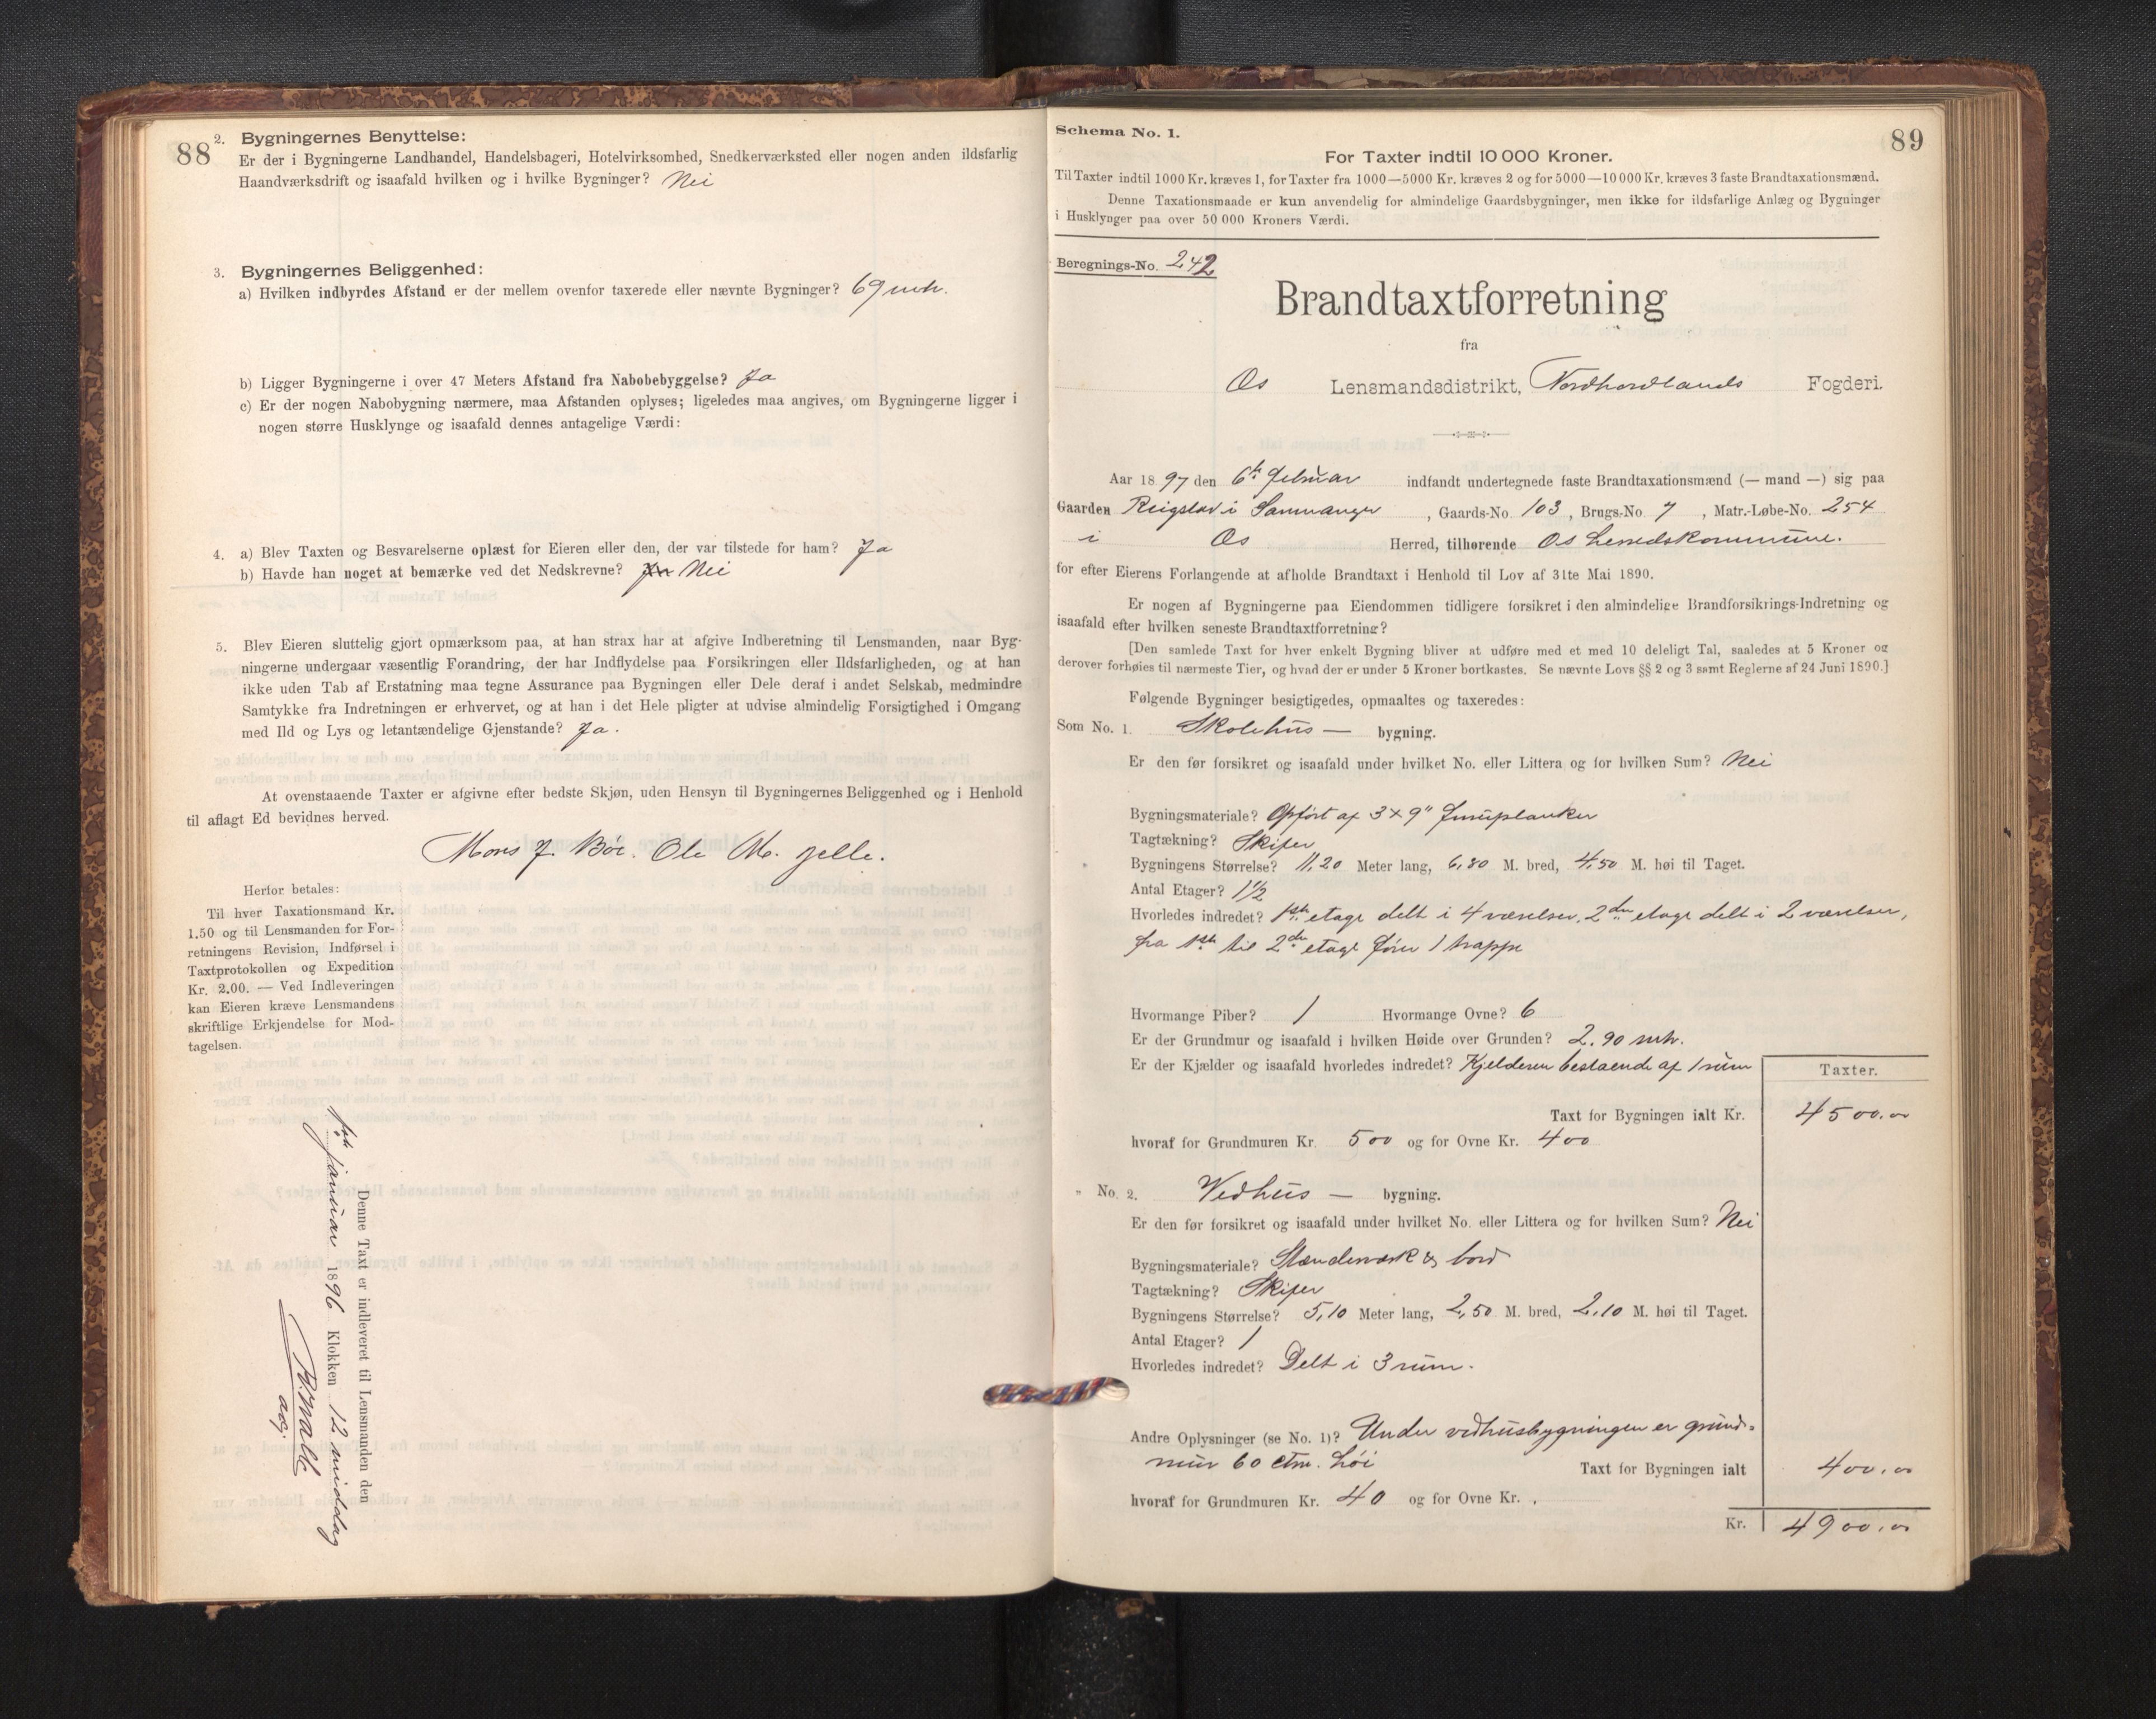 88
2. Bygningernes Benyttelse:
Er der i Bygningerne Landhandel, Handelsbageri, Hotelvirksomhed, Snedkerværksted eller nogen anden ildsfarlig
Haandværksdrift og isaafald hvilken og i hvilke Bygninger? Nei
3. Bygningernes Beliggenhed:
a) Hvilken indbyrdes Afstand er der mellem ovenfor taxerede eller nævnte Bygninger? 69 mtr.
b) Ligger Bygningerne i over 47 Meters Afstand fra Nabobebyggelse? Ja
c) Er der nogen Nabobygning nærmere, maa Afstanden oplyses; ligeledes maa angives, om Bygningerne ligger i
nogen større Husklynge og isaafald dennes antagelige Værdi:
4. a) Blev Taxten og Besvarelserne oplæst for Eieren eller den, der var tilstede for ham? Ja
b) Havde han noget at bemærke ved det Nedskrevne? Nei
5. Blev Eieren sluttelig gjort opmærksom paa, at han strax har at afgive Indberetning til Lensmanden, naar Byg-
ningerne undergaar væsentlig Forandring, der har Indflydelse paa Forsikringen eller Ildsfarligheden, og at han
ikke uden Tab af Erstatning maa tegne Assurance paa Bygningen eller Dele deraf i andet Selskab, medmindre
Samtykke fra Indretningen er erhvervet, og at han i det Hele pligter at udvise almindelig Forsigtighed i Omgang
med Ild og Lys og letantændelige Gjenstande? Ja.
At ovenstaaende Taxter er afgivne efter bedste Skjøn, uden Hensyn til Bygningernes Beliggenhed og i Henhold
til aflagt Ed bevidnes herved.
Mons J. Bøe. Ole M. Gjelle.
Herfor betales:
Til hver Taxationsmand Kr.
1.50 og til Lensmanden for For-
retningens Revision, Indførsel i
Taxtprotokollen og Expedition
Kr. 2.00. — Ved Indleveringen
kan Eieren kræve Lensmandens
skriftlige Erkjendelse for Mod-
tagelsen.
Denne Taxt er indleveret til Lensmanden den
januar 1896 Klokken 12 middag
89
Schema No. 1.
For Taxter indtil 10 000 Kroner.
Til Taxter indtil 1000 Kr. kræves 1, for Taxter fra 1000—5000 Kr. kræves 2 og for 5000—10 000 Kr. kræves 3 faste Brandtaxationsmænd.
Denne Taxationsmaade er kun anvendelig for almindelige Gaardsbygninger, men ikke for ildsfarlige Anlæg og Bygninger
i Husklynger paa over 50 000 Kroners Værdi.
Beregnings-No. 242
Brandtaxtforretning
fra
Os Lensmandsdistrikt, Nordhordlands Fogderi.
Aar 1897 den 6te februar indfandt undertegnede faste Brandtaxationsmænd (— mand —) sig paa
Gaarden i Samnanger, Gaards-No. 103, Brugs-No. 7, Matr.-Løbe-No. 254
i Os Herred, tilhørende Os herredskommune.
for efter Eierens Forlangende at afholde Brandtaxt i Henhold til Lov af 31te Mai 1890.
Er nogen af Bygningerne paa Eiendommen tidligere forsikret i den almindelige Brandforsikrings-Indretning og
isaafald efter hvilken seneste Brandtaxtforretning?
[Den samlede Taxt for hver enkelt Bygning bliver at udføre med et med 10 deleligt Tal, saaledes at 5 Kroner og
derover forhøies til nærmeste Tier, og hvad der er under 5 Kroner bortkastes. Se nævnte Lovs §§ 2 og 3 samt Reglerne af 24 Juni 1890.]
Følgende Bygninger besigtigedes, opmaaltes og taxeredes:
Som No. 1. Skolehus — bygning.
Er den før forsikret og isaafald under hvilket No. eller Littera og for hvilken Sum? Nei
Bygningsmateriale? Opført af 3 × 9" furuplanker
Tagtækning? Skifer
Bygningens Størrelse? 11,20 Meter lang, 6,80 M. bred, 4,50 M. høi til Taget.
Antal Etager? 1½
Hvorledes indredet? 1ste etage delt i 4 værelser, 2den etage delt i 2 værelser,
fra 1ste til 2den etage fører 1 trappe
Hvormange Piber? 1 Hvormange Ovne? 6
Er der Grundmur og isaafald i hvilken Høide over Grunden? 2,90 mtr.
Er der Kjælder og isaafald hvorledes indredet? Kjelderen bestaaende af 1 rum
Taxter.
Taxt for Bygningen ialt Kr. 4500.00
hvoraf for Grundmuren Kr. 500 og for Ovne Kr. 400
" No. 2. Vedhus — bygning.
Er den før forsikret og isaafald under hvilket No. eller Littera og for hvilken Sum? Nei
Bygningsmateriale? Stænderværk & bord
Tagtækning? Skifer
Bygningens Størrelse? 5,10 Meter lang, 2,50 M. bred, 2,10 M. høi til Taget.
Antal Etager? 1
Hvorledes indredet? Delt i 3 rum.
Andre Oplysninger (se No. 1)? Under vedhusbygningen er grund-
mur 60 ctm. høi Taxt for Bygningen ialt 400.00
hvoraf for Grundmuren Kr. 40 og for Ovne Kr. .
Kr. 4900.00